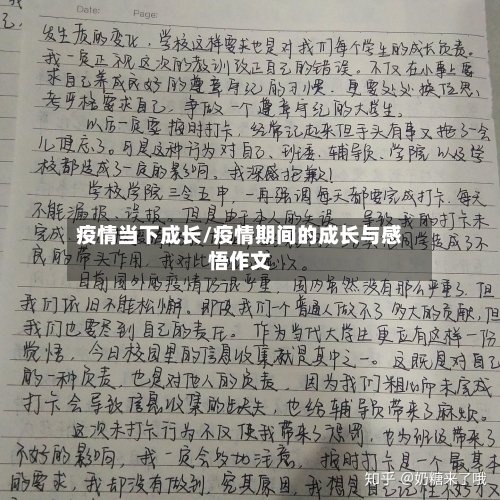 Date: Page:
发生质的变化，学校这样要求也是对我们每个学生的成长负责。
我一定正视这次的教训改正自己的错误。不仅在小事上要
求自己养成良好的遵章守纪的习惯，更要处处换位思
考严格要求自己，争做一个遵章守纪的大学生。
以后一定要按时打卡，经常记起来但手头有事又拖了一会
儿便忘了。可是这种行为对自己、班委、辅导员、学院以及学
校都造成了一定的影响，我深感抱歉！
学校学院三令五申，一再强调每天都要完成打卡，每天
不能漏报、误报。但是由于本人的失误，导致我的打卡未
完成
疫情当下成长/疫情期间的成长与感
悟作文
同学造成了不
良的带头作用，我对此
目前国外的疫情仍很严重，国内虽然没有那么严重了，但
我们依旧不能松懈。即使我们一个普通人做不了多大的贡献，但
我们也要尽到自己的责任。作为当代大学生更应有这样一份
觉悟，今日校园里的信息收集就是其中之一。这既是对自己
的一种负责，也是对他人的负责，因为我们粗心而未完成
打卡会导致信息收集的缺失，也给辅导员带来了麻烦。
这次未打卡行为不仅使我带来了惩罚，也为班级带来了
不好的影响，我一定会多加注意。按时打卡是一个最基本
的要求，我却没有做到，究其原因，我想是
知乎 @奶糖来了哦